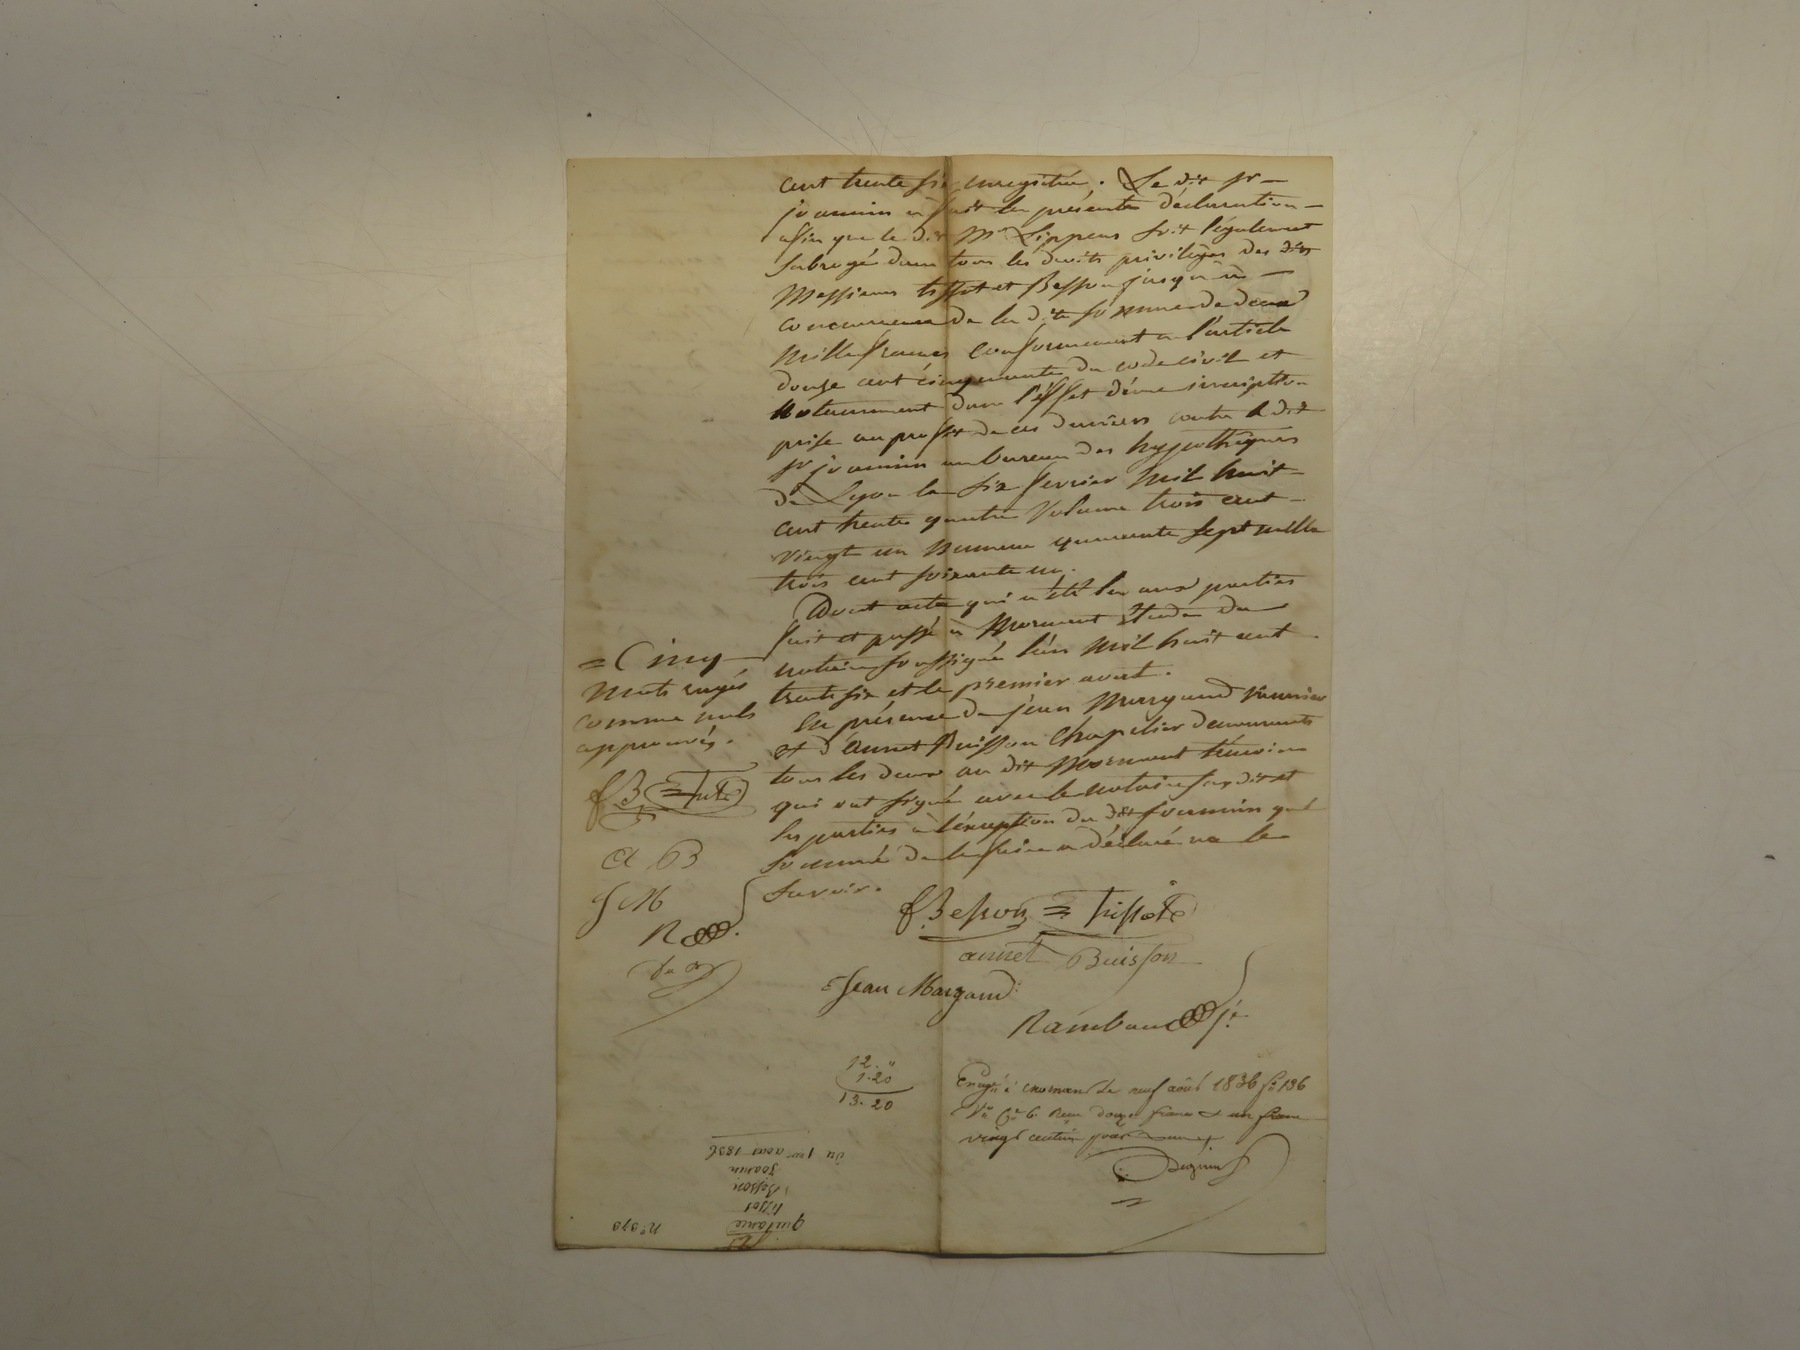 cent trente six enregistrée. Le dit sr
joannin a fait la présente déclaration
afin que le dit Mr Lippens soit légalement
subrogé dans tous les droits privilèges des dits
Messieurs tissot et Besson jusqu'à
concurrence de la dite somme de deux
mille francs conformement a l'article
douze cent cinquante du code civil et
notamment dans l'éffet d'une inscription
prise au profit de ces derniers contre le dit
sr joannin au bureau des hypothèques
de Lyon le six fevrier mil huit
cent trente quatre Volume trois cent
vingt un Numero quarante sept mille
trois cent soixante un.
Dont acte qui a été lu aux parties
fait et passé à Mornant Etude du
notaire soussigné l'an mil huit cent
trente six et le premier aout.
En présence de jean Margand
et d'annet Buisson Chapelier demeurants
tous les deux au dit Mornant témoins
qui ont signé avec le notaire susdit et
les parties à l'éxception du dit joannin qui
sommé de le faire a déclaré ne le
savoir.
= Cinq
mots rayés
comme nuls
approuvés.
a B
J M
R
fBesson = Tissote
annet Buisson
Jean Margand
Rambaud
12. "
1.20
13.20
le neuf août 1836 fo 136
Vo Ce 6 Reçu douze francs & un franc
vingt centimes pour
quitance
tissot
Besson
Joanin
du 1er aout 1836